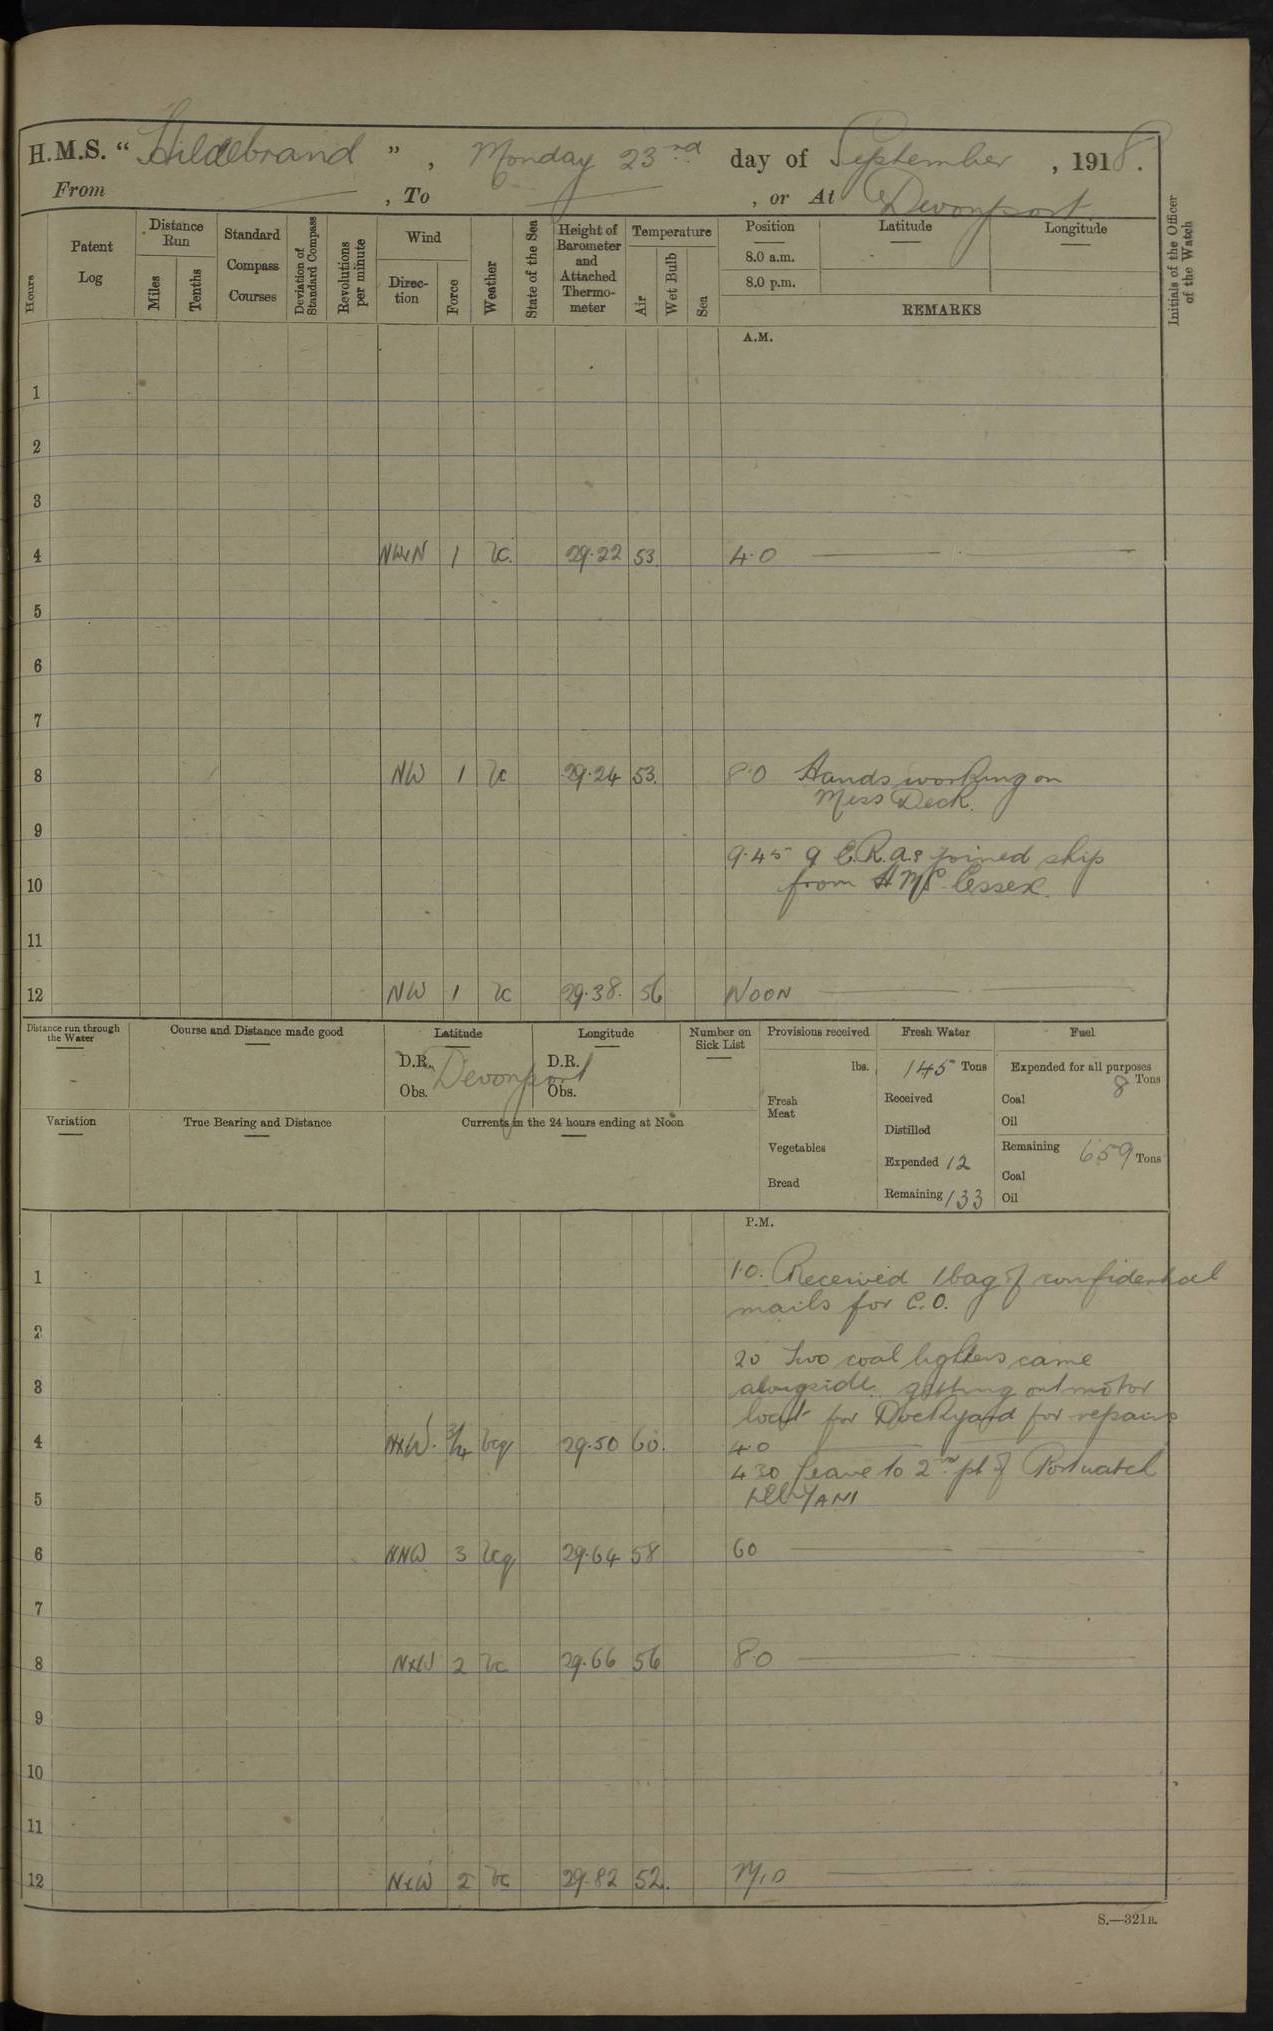 H.M.S. “ Hildebrand ” , Monday 23rd day of September , 1918.
From — , To — , or At Devonport
Hours
Patent Log
Distance Run
Miles
Tenths
Standard Compass Courses
Deviation of Standard Compass
Revolutions per minute
Wind
Direc-tion
Force
Weather
State of the Sea
Height of Barometer and Attached Thermo-meter
Temperature
Air
Wet Bulb
Sea
Position
Latitude
Longitude
8.0 a.m.
8.0 p.m.
REMARKS
Initials of the Officer of the Watch
A.M.
1
2
3
4 NWxN 1 bc. 29.22 53. 4.0 —
5
6
7
8 NW 1 bc 29.24 53. 8.0 Hands working on
Mess Deck.
9
9.45 9 E.R.A.s joined ship
10 from HMS Essex.
11
12 NW 1 bc 29.38. 56 NOON —
Distance run through the Water
Course and Distance made good
Latitude
D.R.
Obs.
Devonport
Longitude
D.R.
Obs.
Number on Sick List
Provisions received
lbs.
Fresh Meat
Vegetables
Bread
Fresh Water
145 Tons
Received
Distilled
Expended 12
Remaining 133
Fuel
Expended for all purposes
8 Tons
Coal
Oil
Remaining 659 Tons
Coal
Oil
Variation
True Bearing and Distance
Currents in the 24 hours ending at Noon
P.M.
1 1.0. Received 1 bag of confidential
mails for C.O.
2
20 Two coal lighters came
3 alongside. getting out motor
boat for Dockyard for repairs
4 NxW. 3/4 bcq 29.50 60. 4.0
430 Leave to 2nd pt of Port watch
5
6 NNW 3 bcq 29.64 58 60 —
7
8 NxW 2 bc 29.66 56 8.0 —
9
10
11
12 NxW 2 bc 29.82 52. MID —
S.—321B.